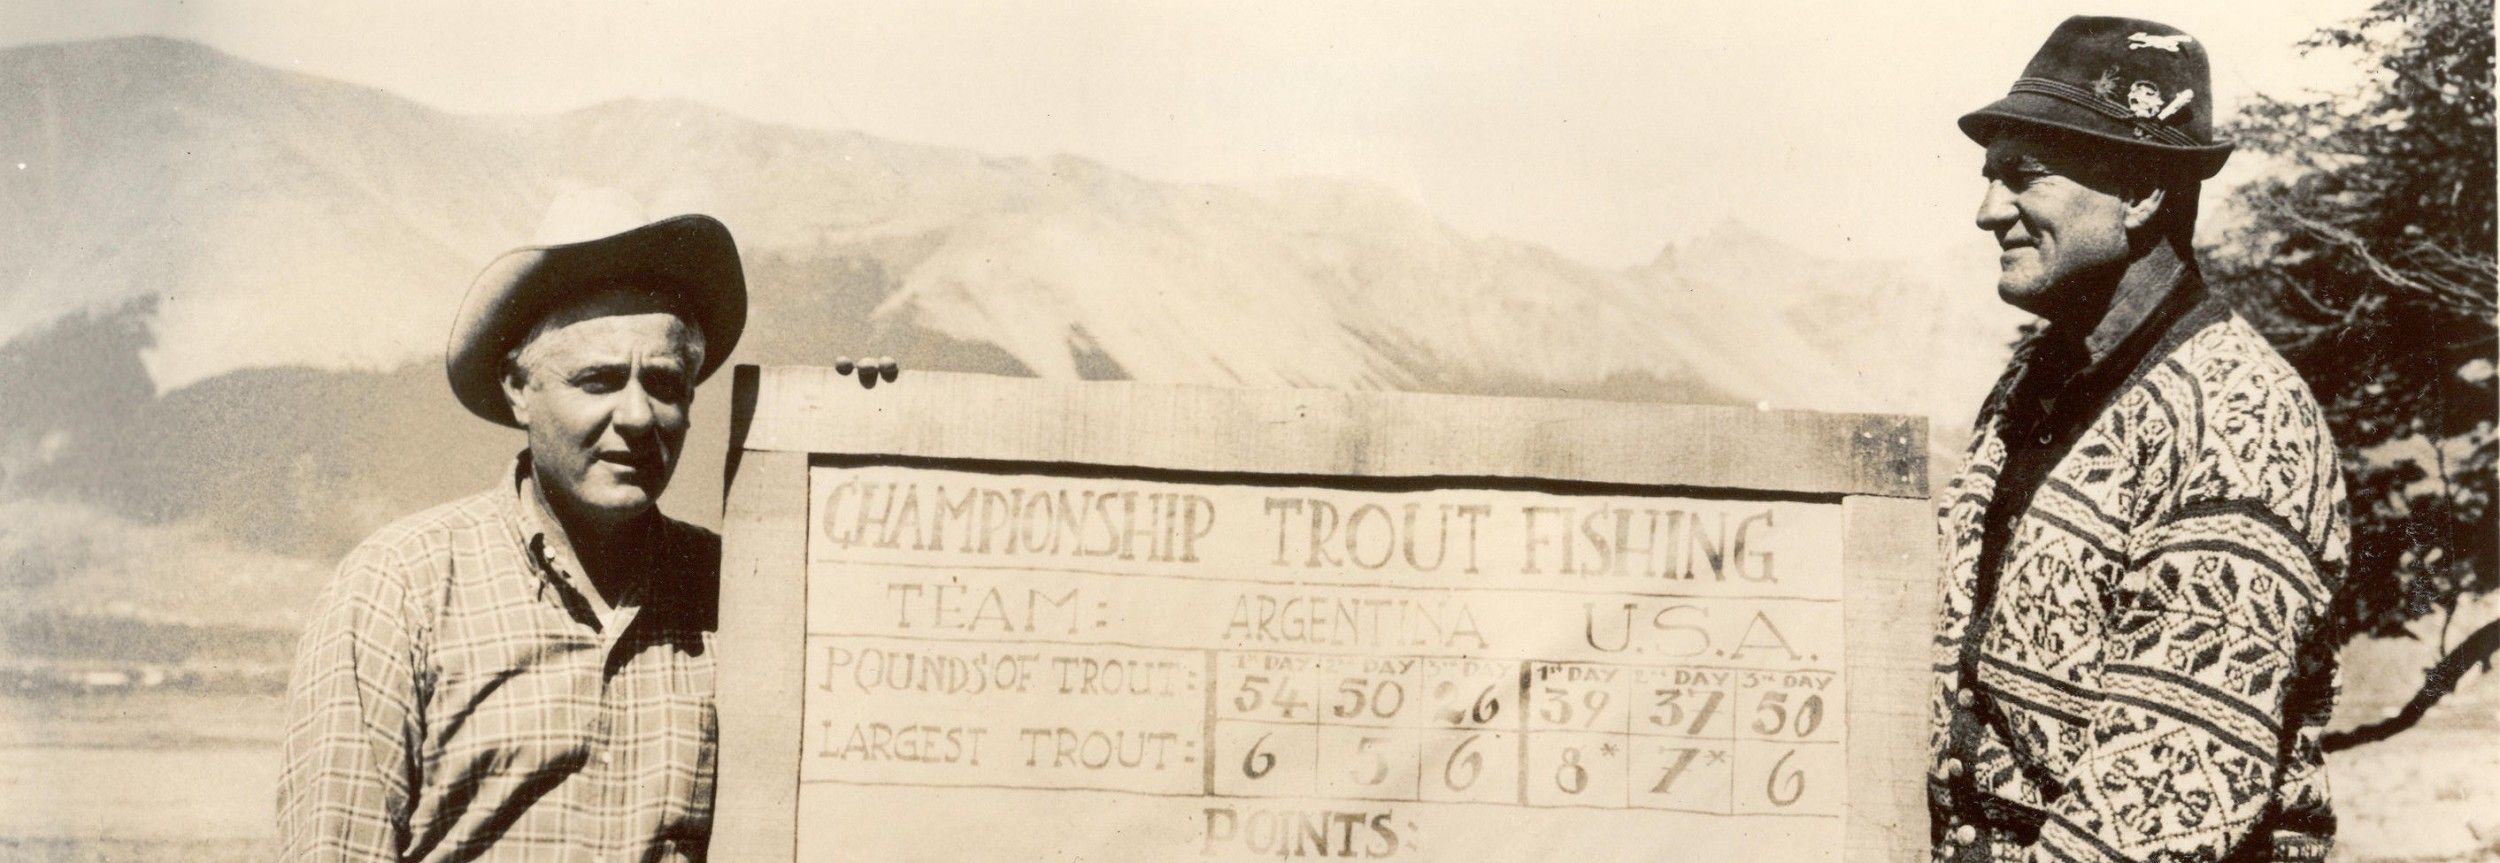 CHAMPIONSHIP TROUT FISHING
TEAM: ARGENTINA U.S.A.
1ST DAY 2ND DAY 3RD DAY 1ST DAY 2ND DAY 3RD DAY
POUNDS OF TROUT: 54 50 26 39 37 50
LARGEST TROUT: 6 5 6 8* 7* 6
POINTS: